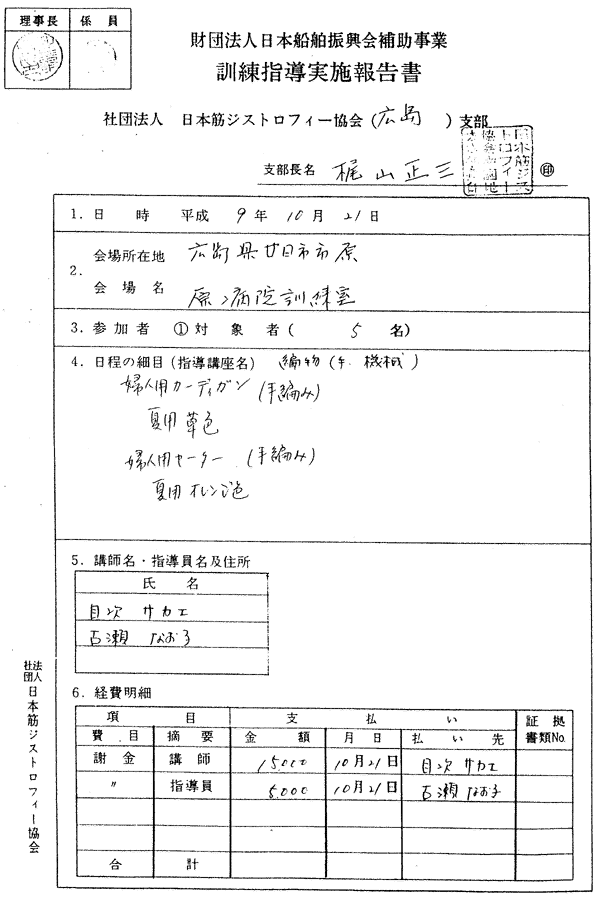 理事長 係員
財団法人日本船舶振興会補助事業
訓練指導実施報告書
社団法人 日本筋ジストロフィー協会(広島 )支部
支部長名 梶山正三 印
1.日 時 平成 9年 10月 21日
2.会場所在地 広島県廿日市市原
会場名 原ノ病院訓練室
3.参加者 ①対象者( 5 名)
4.日程の細目(指導講座名) 編物(手 機械)
婦人用カーディガン (手編み)
夏用 草色
婦人用セーター (手編み)
夏用 オレンジ色
5.講師名・指導員名及住所
氏 名
目次 サカエ
古瀬 なお子
6.経費明細
項 目 支 払 い 証 拠
費 目 摘 要 金 額 月 日 払 い 先 書類No.
謝 金 講 師 15,000 10月21日 目次 サカエ
〃 指導員 10月21日 古瀬 なお子
合 計
社団法人 日本筋ジストロフィー協会